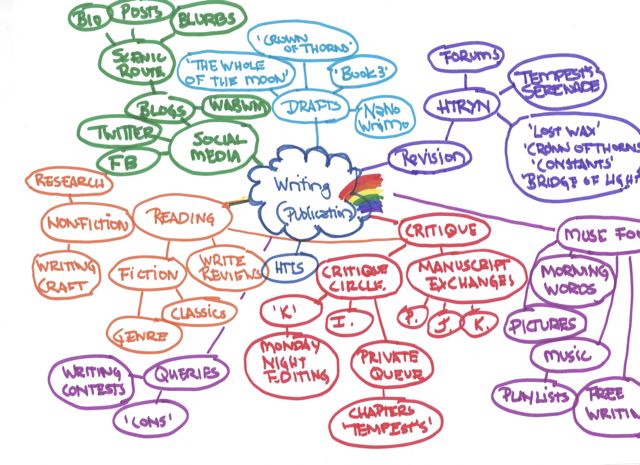 BIO
POSTS
BLURBS
SCENIC
ROUTE
BLOGS
WABWM
TWITTER
FB
SOCIAL
MEDIA
'CROWN
OF THORNS'
'THE WHOLE
OF THE MOON'
'BOOK 3'
DRAFTS
NaNo
WriMo
FORUMS
HTRYN
TEMPEST'S
SERENADE
Revision
'LOST WAX'
'CROWN OF THORNS
'CONSTANTS'
'BRIDGE OF LIGHT'
Writing
Publication
RESEARCH
NONFICTION
WRITING
CRAFT
READING
FICTION
WRITE
REVIEWS
CLASSICS
GENRE
HTLS
CRITIQUE
CRITIQUE
CIRCLE
MANUSCRIPT
EXCHANGES
'K'
I.
P.
J.
K.
MONDAY
NIGHT
EDITING
PRIVATE
QUEUE
CHAPTERS
'TEMPEST'S'
WRITING
CONTESTS
QUERIES
'CONS'
MUSE FOO
MORNING
WORDS
PICTURES
MUSIC
PLAYLISTS
FREE
WRITIN